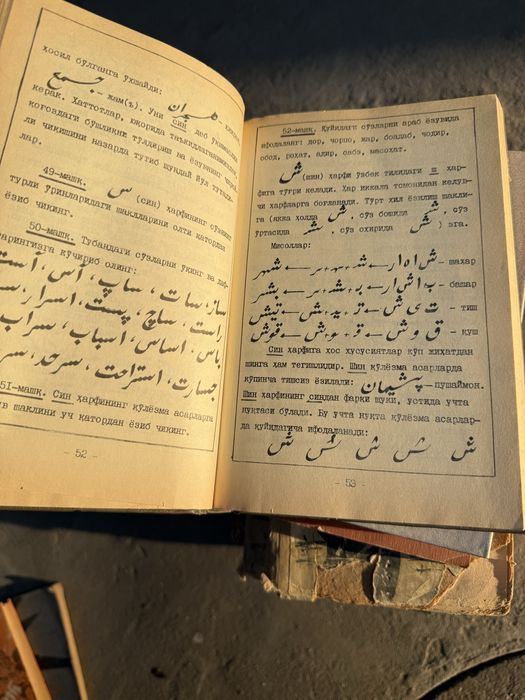 ҳосил бўлганга ўхшайди:
جمع -жам(ъ). Уни
син деб ўқимаслик
керак. Хаттотлар, юқорида таъкидлаганимиздек,
қоғоздаги бўшлиқни тўлдириш ва ёзувнинг
ли чиқишини назарда тутиб шундай йўл тутган-
лар.
49-машқ. س (син) ҳарфининг сўзнинг
турли ўринларидаги шаклларини олти қатордан
ёзиб чиқинг.
50-машқ. Тубандаги сўзларни ўқинг ва даф-
тарингизга кўчириб олинг:
ساز، سات، ساپ، آس، آست
راست، ساچ، پست، اسرار، سر
باس، اساس، اسباب، سراب
جسارت، استراحت، سرحد، سر
51-машқ. Син ҳарфининг қўлёзма асарларга
шаклини уч қатордан ёзиб чиқинг.
- 52 -
52-машқ. Қуйидаги сўзларни араб ёзувида
ифодаланг: дор, чорпо, мар, боадаб, чодир,
обод, роҳат, адир, сабз, масоҳат.
ش (шин) ҳарфи ўзбек тилидаги ш ҳар-
фига тўғри келади. Ҳар иккала томонидан келув-
чи ҳарфларга боғланади. Тўрт хил ёзилиш шакли-
га (якка ҳолда ش, сўз бошида شـ, сўз
ўртасида ـشـ, сўз охирида ـش) эга.
Мисоллар:
ش ا ه ا ر ← شـ هـ ر ← شهر - шаҳар
ب ا ش ا ر ← بـ شـ ر ← بشر - башар
ت ی ش ← تـ یـ ش ← تیش - тиш
ق و ش ← قـ و ش ← قوش - қуш
Син ҳарфига хос хусусиятлар кўп жиҳатдан
шинга ҳам тегишлидир. Шин қўлёзма асарларда
кўпинча тишсиз ёзилади: پشیمان -пушаймон.
Шин ҳарфининг синдан фарқи шуки, устида учта
нуқтаси бўлади. Бу учта нуқта қўлёзма асарлар-
да қуйидагича ифодаланади:
ش ش ش ش ش
- 53 -